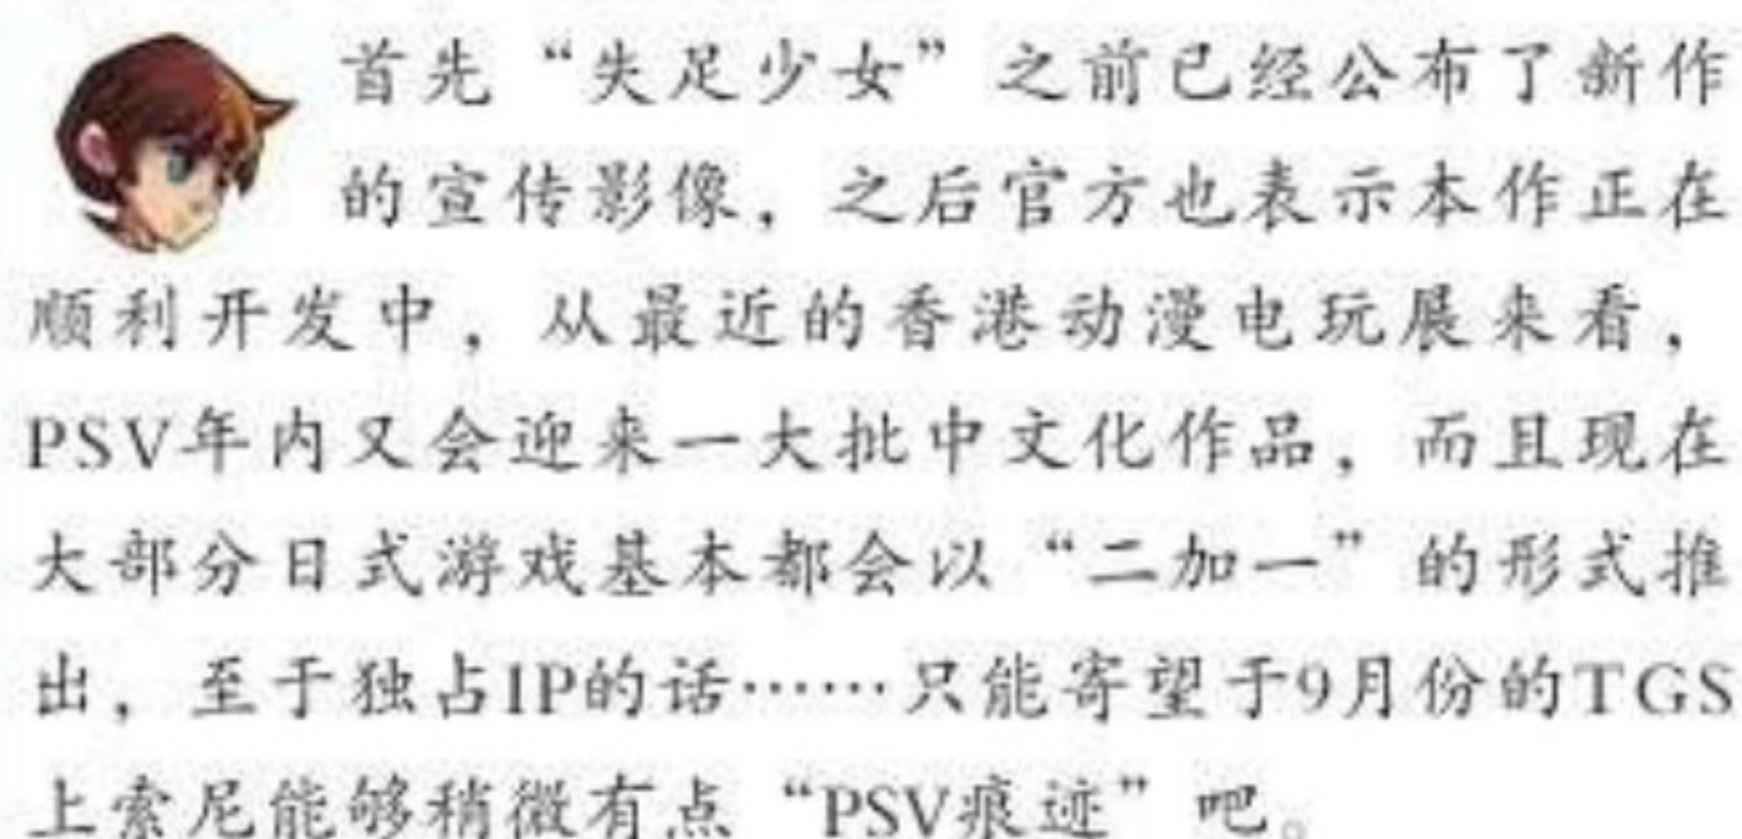 首先“失足少女”之前已经公布了新作
的宣传影像，之后官方也表示本作正在
顺利开发中，从最近的香港动漫电玩展来看，
PSV年内又会迎来一大批中文化作品，而且现在
大部分日式游戏基本都会以“二加一”的形式推
出，至于独占IP的话……只能寄望于9月份的TGS
上索尼能够稍微有点“PSV痕迹”吧。